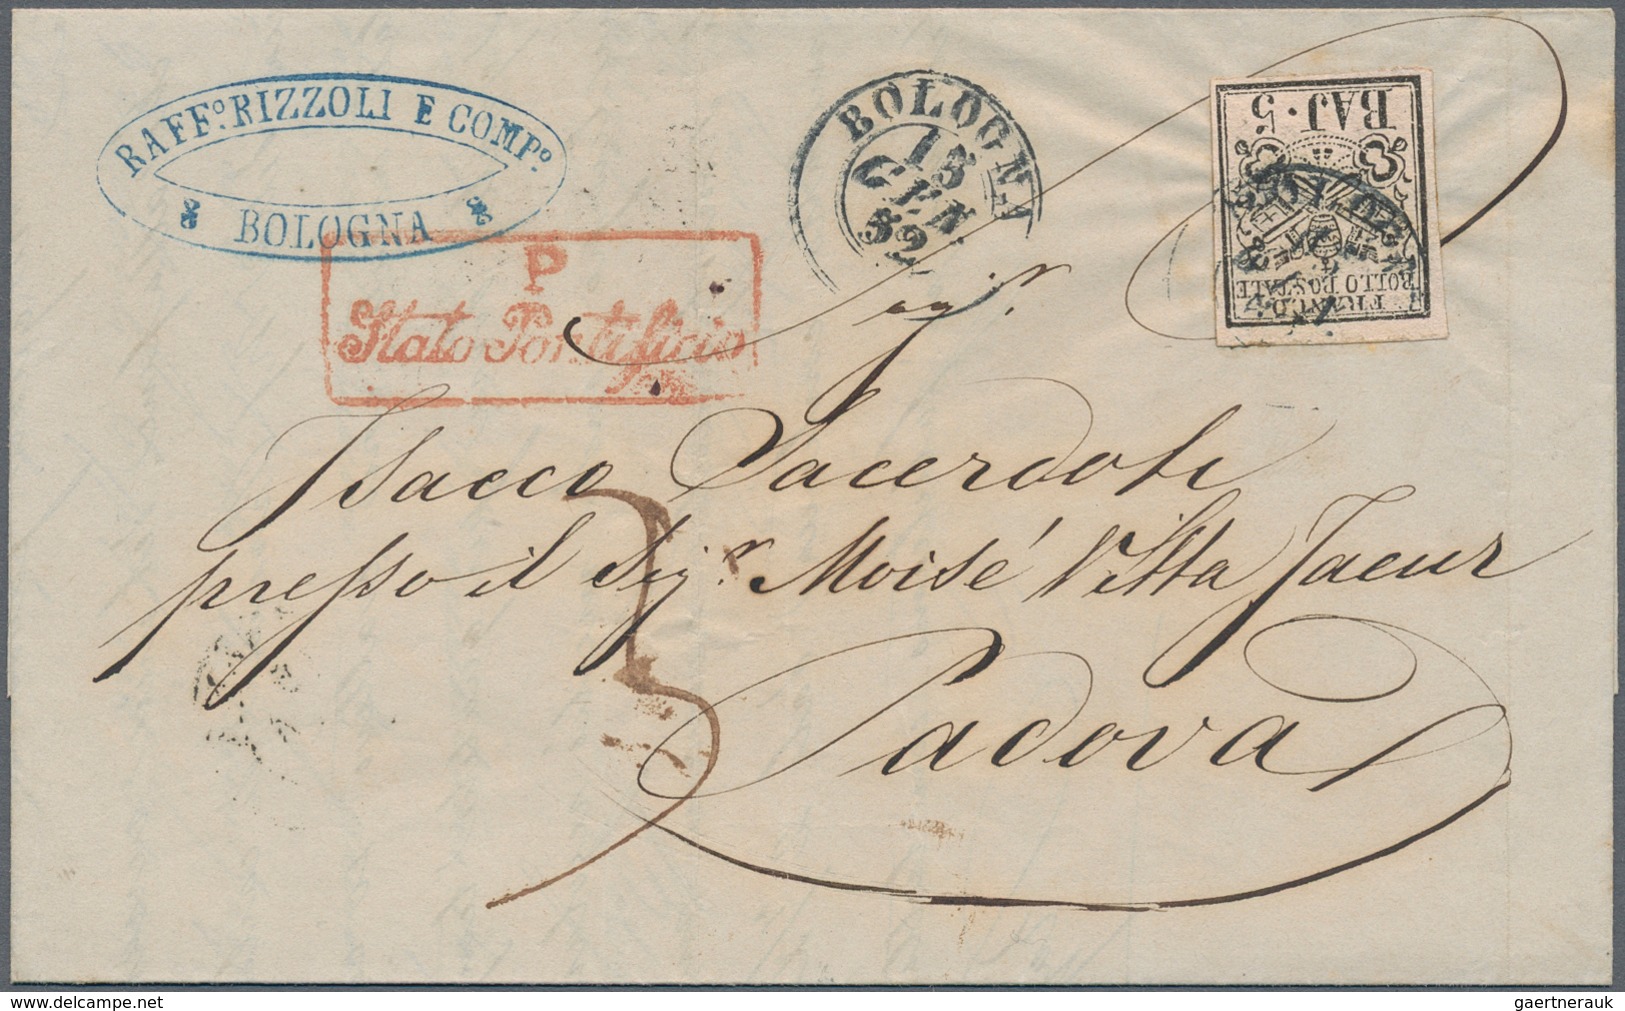 RAFF.º RIZZOLI E COMP.º
BOLOGNA
P
Stato Pontificio
BOLOGNA
13
GEN
52
BAJ. 5
FRANCO
BOLLO POSTALE
Isacco Sacerdoti
presso il Sig.r Moisé Vitta Jacur
Padova
www.delcampe.net
gaertnerauk